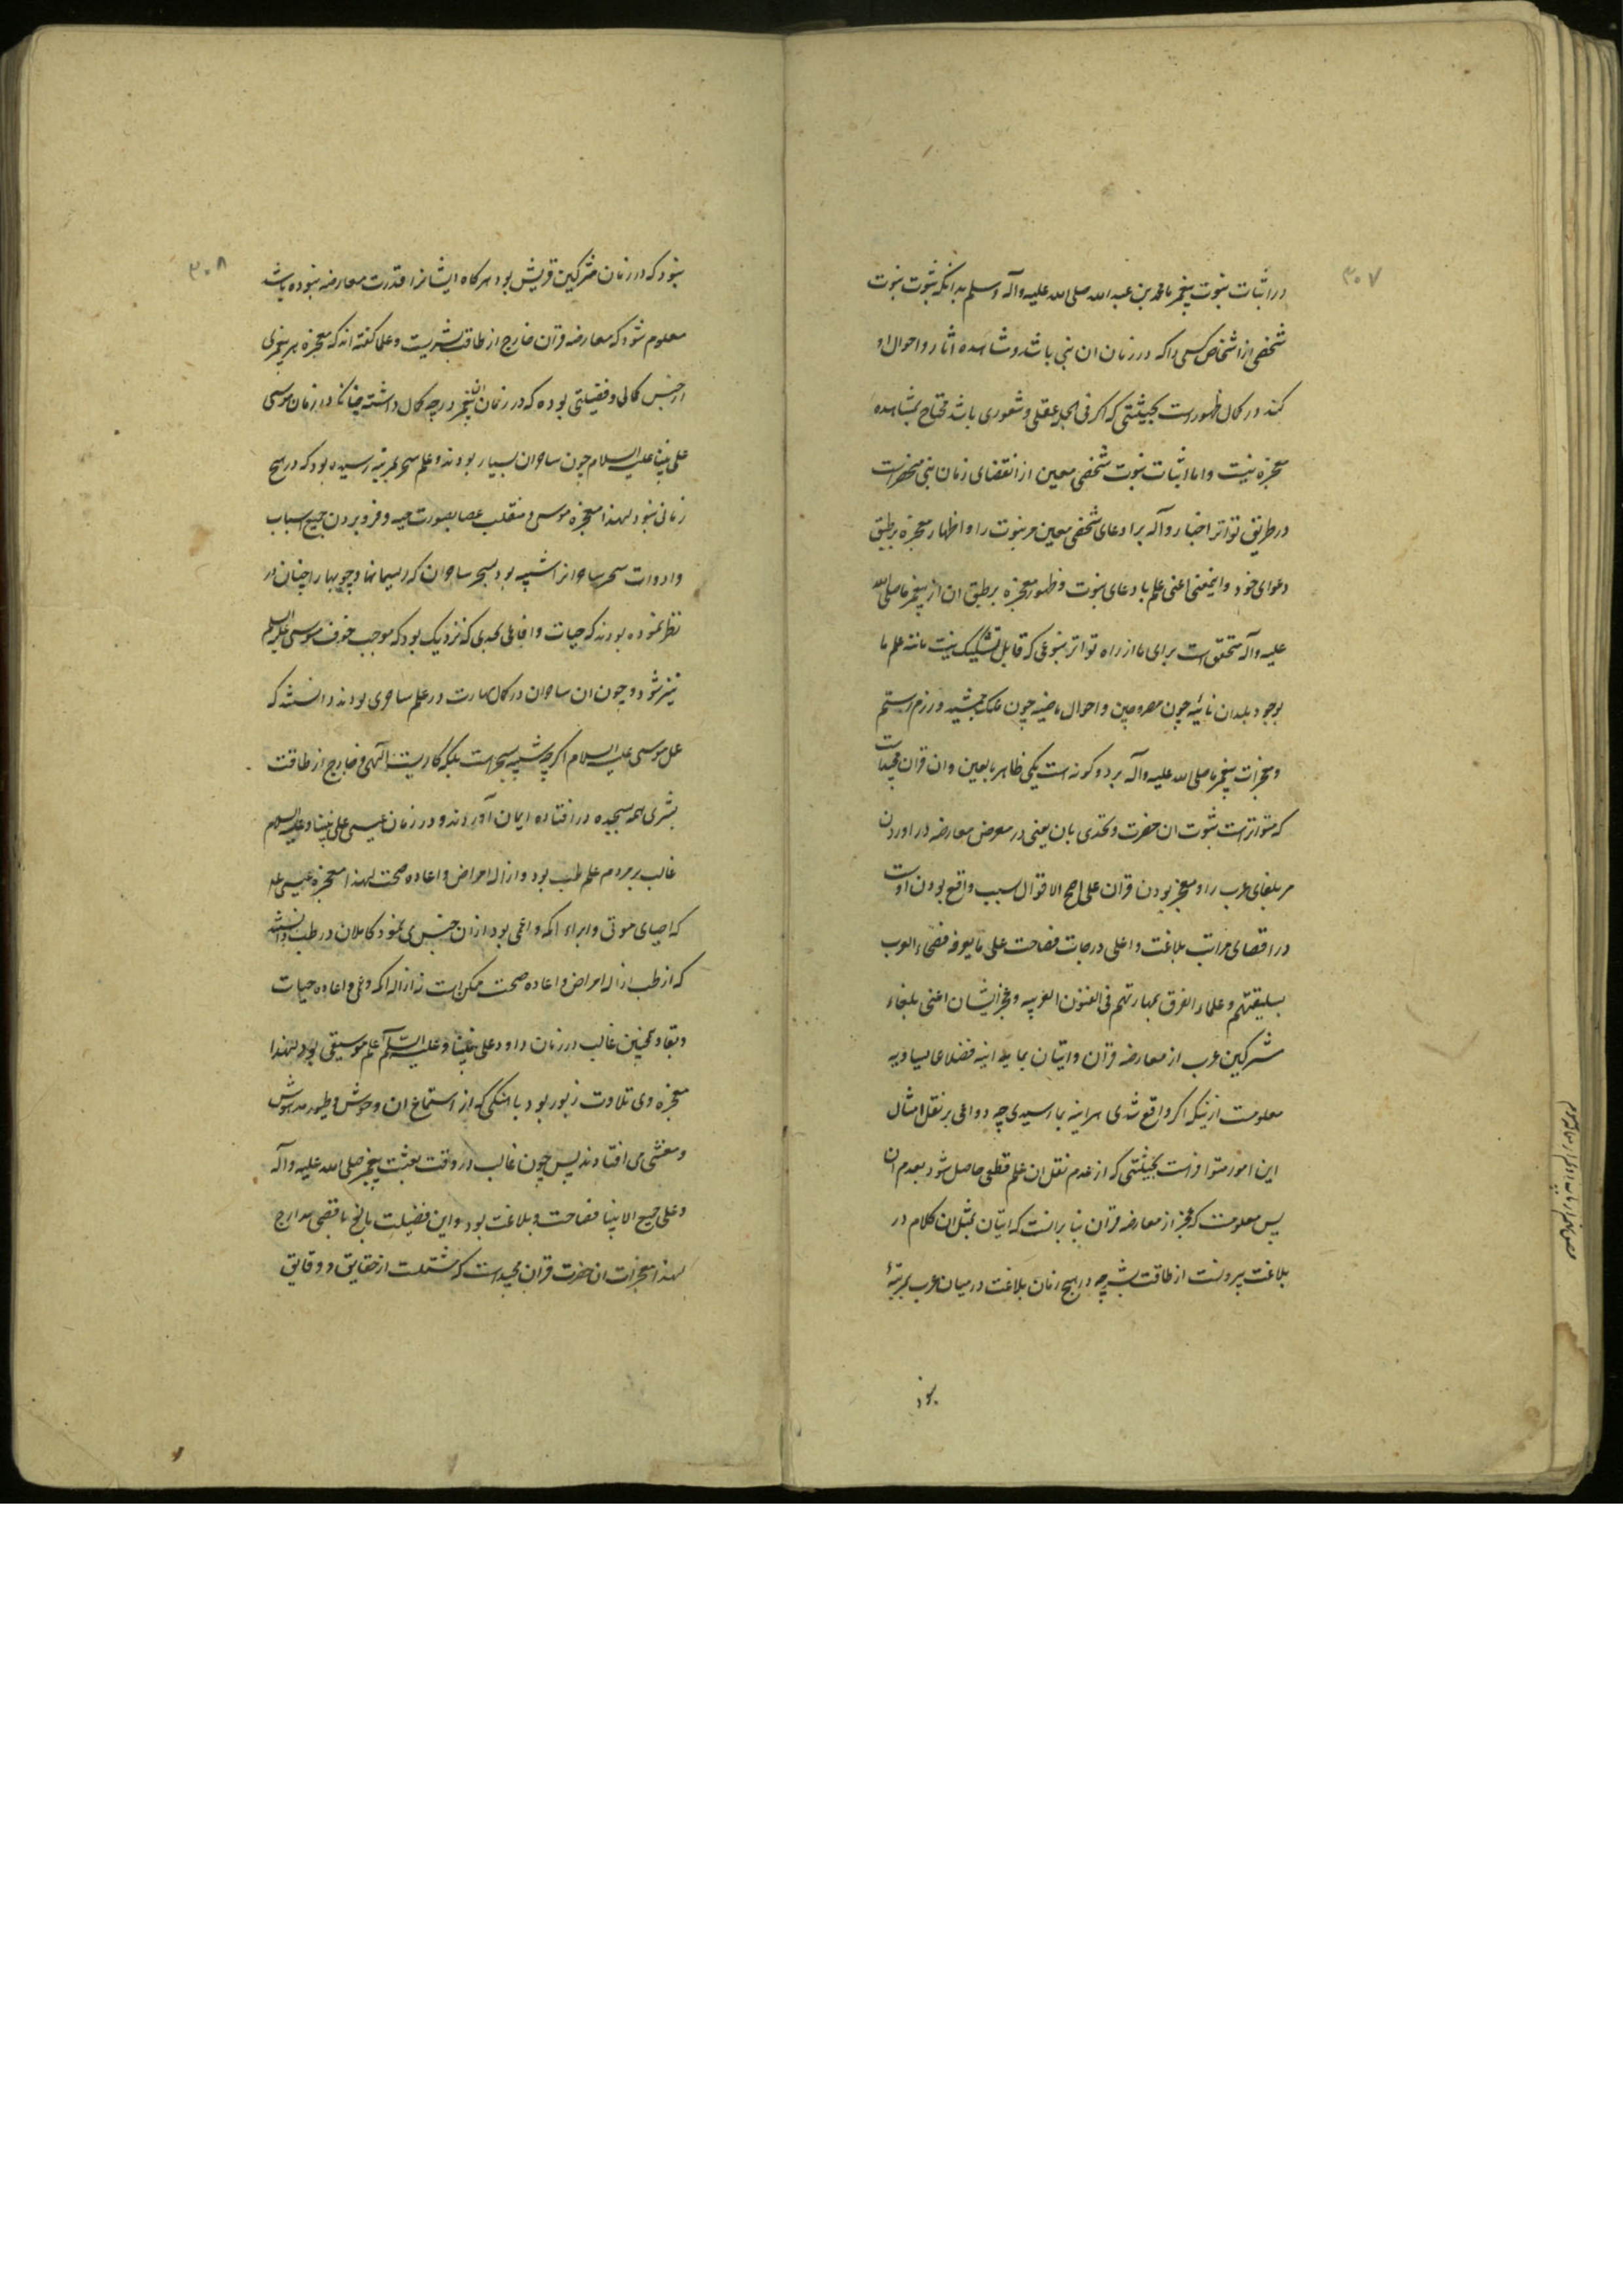 ۳۰۷
در اثبات نبوت پیغمبر ما محمد بن عبد الله صلی الله علیه وآله وسلم بدانکه ثبوت نبوت
شخصی از اشخاص کسی را که در زمان ان نبی باشد و مشاهده اثار و احوال او
کند در کمال ظهورست بحیثیتی که اکر فی الجمله عقلی و شعوری باشد محتاج بمشاهده
معجزه نیست و اما اثبات نبوت شخصی معین از انقضای زمان نبی منحصرست
در طریق تواتر اخبار وآله بر ادعای شخصی معین مر نبوت را و اظهار معجزه بر طبق
دعوای خود و اینمعنی اعنی علم بادعای نبوت و ظهور معجزه بر طبق ان از پیغمبر ما صلی الله
علیه وآله متحقق است برای ما از راه تواتر بنوعی که قابل تشکیک نیست مانند علم ما
بوجود بلدان نائیه چون مصر و چین و احوال ماضیه چون ملک جمشید و رزم رستم
و معجزات پیغمبر ما صلی الله علیه وآله بر دو کونه است یکی ظاهر بالعین وان قران مجیدست
که متواترست ثبوت ان حضرت و تحدی بان یعنی در معرض معارضه در اوردن
مر بلغای عرب را و معجز بودن قران علی اصح الاقوال بسبب واقع بودن اوست
در اقصای مراتب بلاغت و اعلی درجات فصاحت علی ما یعرفه فصحاء العرب
بسلیقتهم و علماء الفرق بمهارتهم فی الفنون العربیه و عجز ایشان اعنی بلغاء
مشرکین عرب از معارضه قران و اتیان بما یدانیه فضلا عما یساویه
معلومست از ینکه اکر واقع شدی هراینه بما رسیدی چه دواعی بر نقل امثال
این امور متوافرست بحیثیتی که از عدم نقل ان علم قطعی حاصل شود بعدم ان
پس معلومست که عجز از معارضه قران بنا برانست که اتیان بمثل ان کلام در
بلاغت بیرونست از طاقت بشر چه در هیچ زمان بلاغت در میان عرب بمرتبهٔ
نبود
۳۰۸
نبود که در زمان مشرکین قریش بود هر کاه ایشانرا قدرت معارضه نبوده باشد
معلوم شود که معارضه قران خارج از طاقت بشریت و علما کفته اند که معجزه هر پیغمبری
از جنس کمالی و فضیلتی بوده که در زمان ان پیغمبر درجه کمال داشته چنانکه در زمان موسی
علی نبینا علیه السلام چون ساحران بسیار بودند و علم سحر بمرتبه رسیده بود که در هیچ
زمانی نبود لهذا معجزه موسی منقلب عصا بصورت حیه و فرو بردن جمیع اسباب
و ادوات سحر ساحرانرا شبیه بود بسحر ساحران که ریسمانها و چوبها را چنان در
نظر نموده بودند که حیات و افاعی بحدی که نزدیک بود که موجب خوف موسی علیه السلم
نیز شود و چون ان ساحران در کمال مهارت در علم ساحری بودند دانستند که
عمل موسی علیه السلام اکر چه شبیه بسحرست بلکه کاریست الهی و خارج از طاقت
بشری همه بسجده در افتاده ایمان آوردند و در زمان عیسی علی نبینا وعلیه السلام
غالب بر مردم علم طب بود و ازاله امراض و اعاده صحت لهذا معجزه عیسی علیه
که احیای موتی و ابراء اکمه و اعمی بود ازان جنس می نمود کاملان در طب دانستند
که از طب ازاله امراض و اعاده صحت ممکن است نه ازاله اکمه و عمی و اعاده حیات
و بقا و همچنین غالب در زمان داود علی نبینا وعلیه السلام علم موسیقی بود لهذا
معجزه وی تلاوت زبور بود با اهنکی که از استماع ان وحوش و طیور مدهوش
و مغشی می افتادند پس چون غالب در وقت بعثت پیغمبر صلی الله علیه وآله
وعلی جمیع الانبیا فصاحت و بلاغت بود و این فضیلت بالغ باقصی مدارج
لهذا معجزات ان حضرت قران مجیدست که مشتملست از حقایق و دقایق